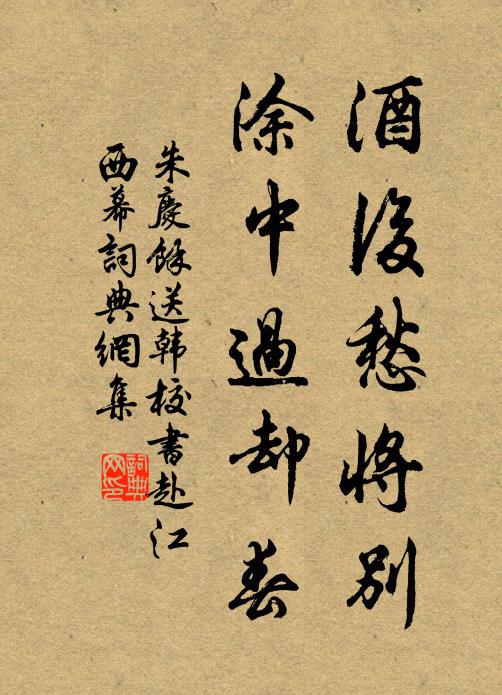 酒後愁將別
涂中過却春
朱慶餘送韩校書赴江
西幕詞典網集
詞典
网印